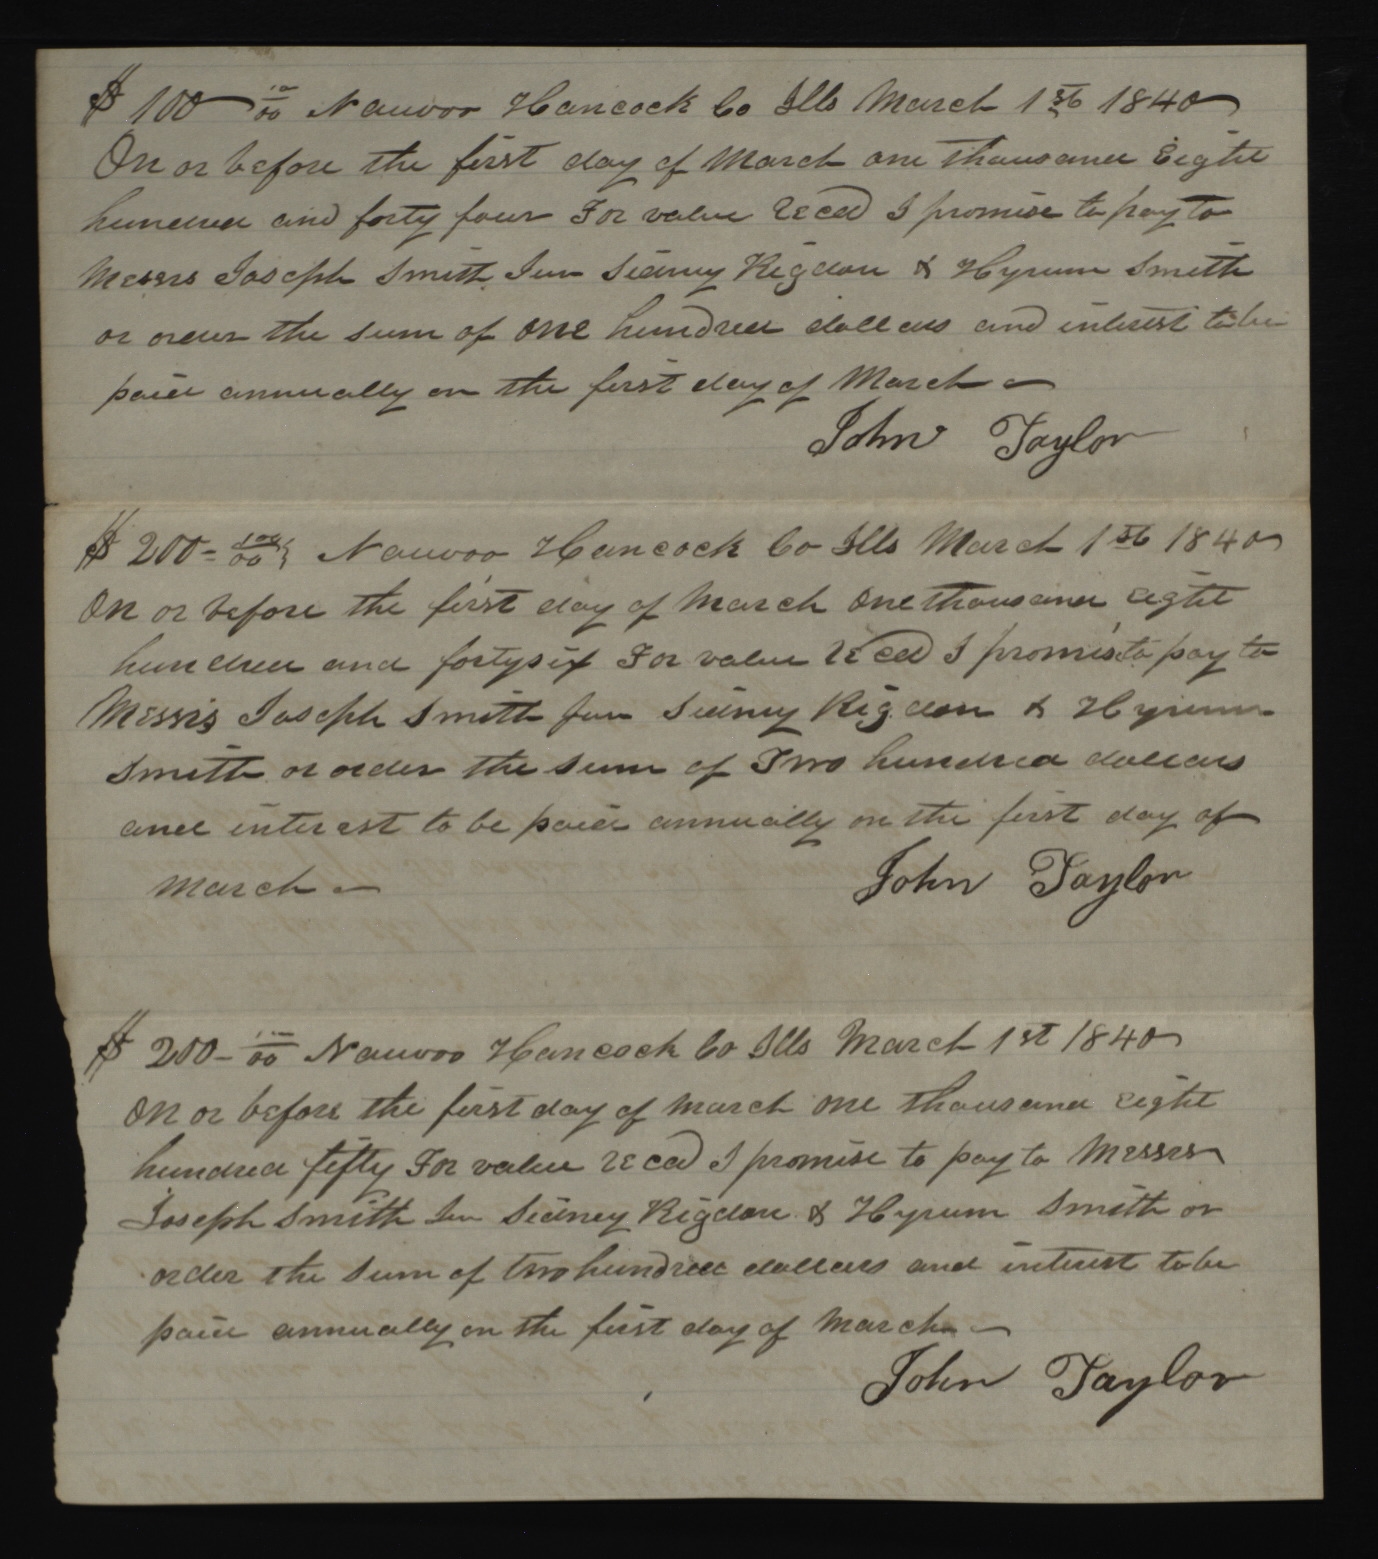 $100 10/00 Nauvoo Hancock Co Ills March 1st 1840
On or before the first day of March one thousand Eight
hundred and forty four For value Recd I promise to pay to
Messrs Joseph Smith Jun Sidney Rigdon & Hyrum Smith
or order the sum of one hundred dollars and interest to be
paid annually on the first day of March
John Taylor
$200- 100/00 Nauvoo Hancock Co Ills March 1st 1840
On or before the first day of March one thousand eight
hundred and forty six For value Recd I promis to pay to
Messrs Joseph Smith Jun Sidney Rigdon & Hyrum
Smith or order the sum of Two hundred dollars
and interest to be paid annually on the first day of
March
John Taylor
$200- 100/00 Nauvoo Hancock Co Ills March 1st 1840
On or before the first day of March one thousand eight
hundred fifty For value Recd I promise to pay to Messrs
Joseph Smith Jun Sidney Rigdon & Hyrum Smith or
order the sum of two hundred dollars and interest to be
paid annually on the first day of March
John Taylor